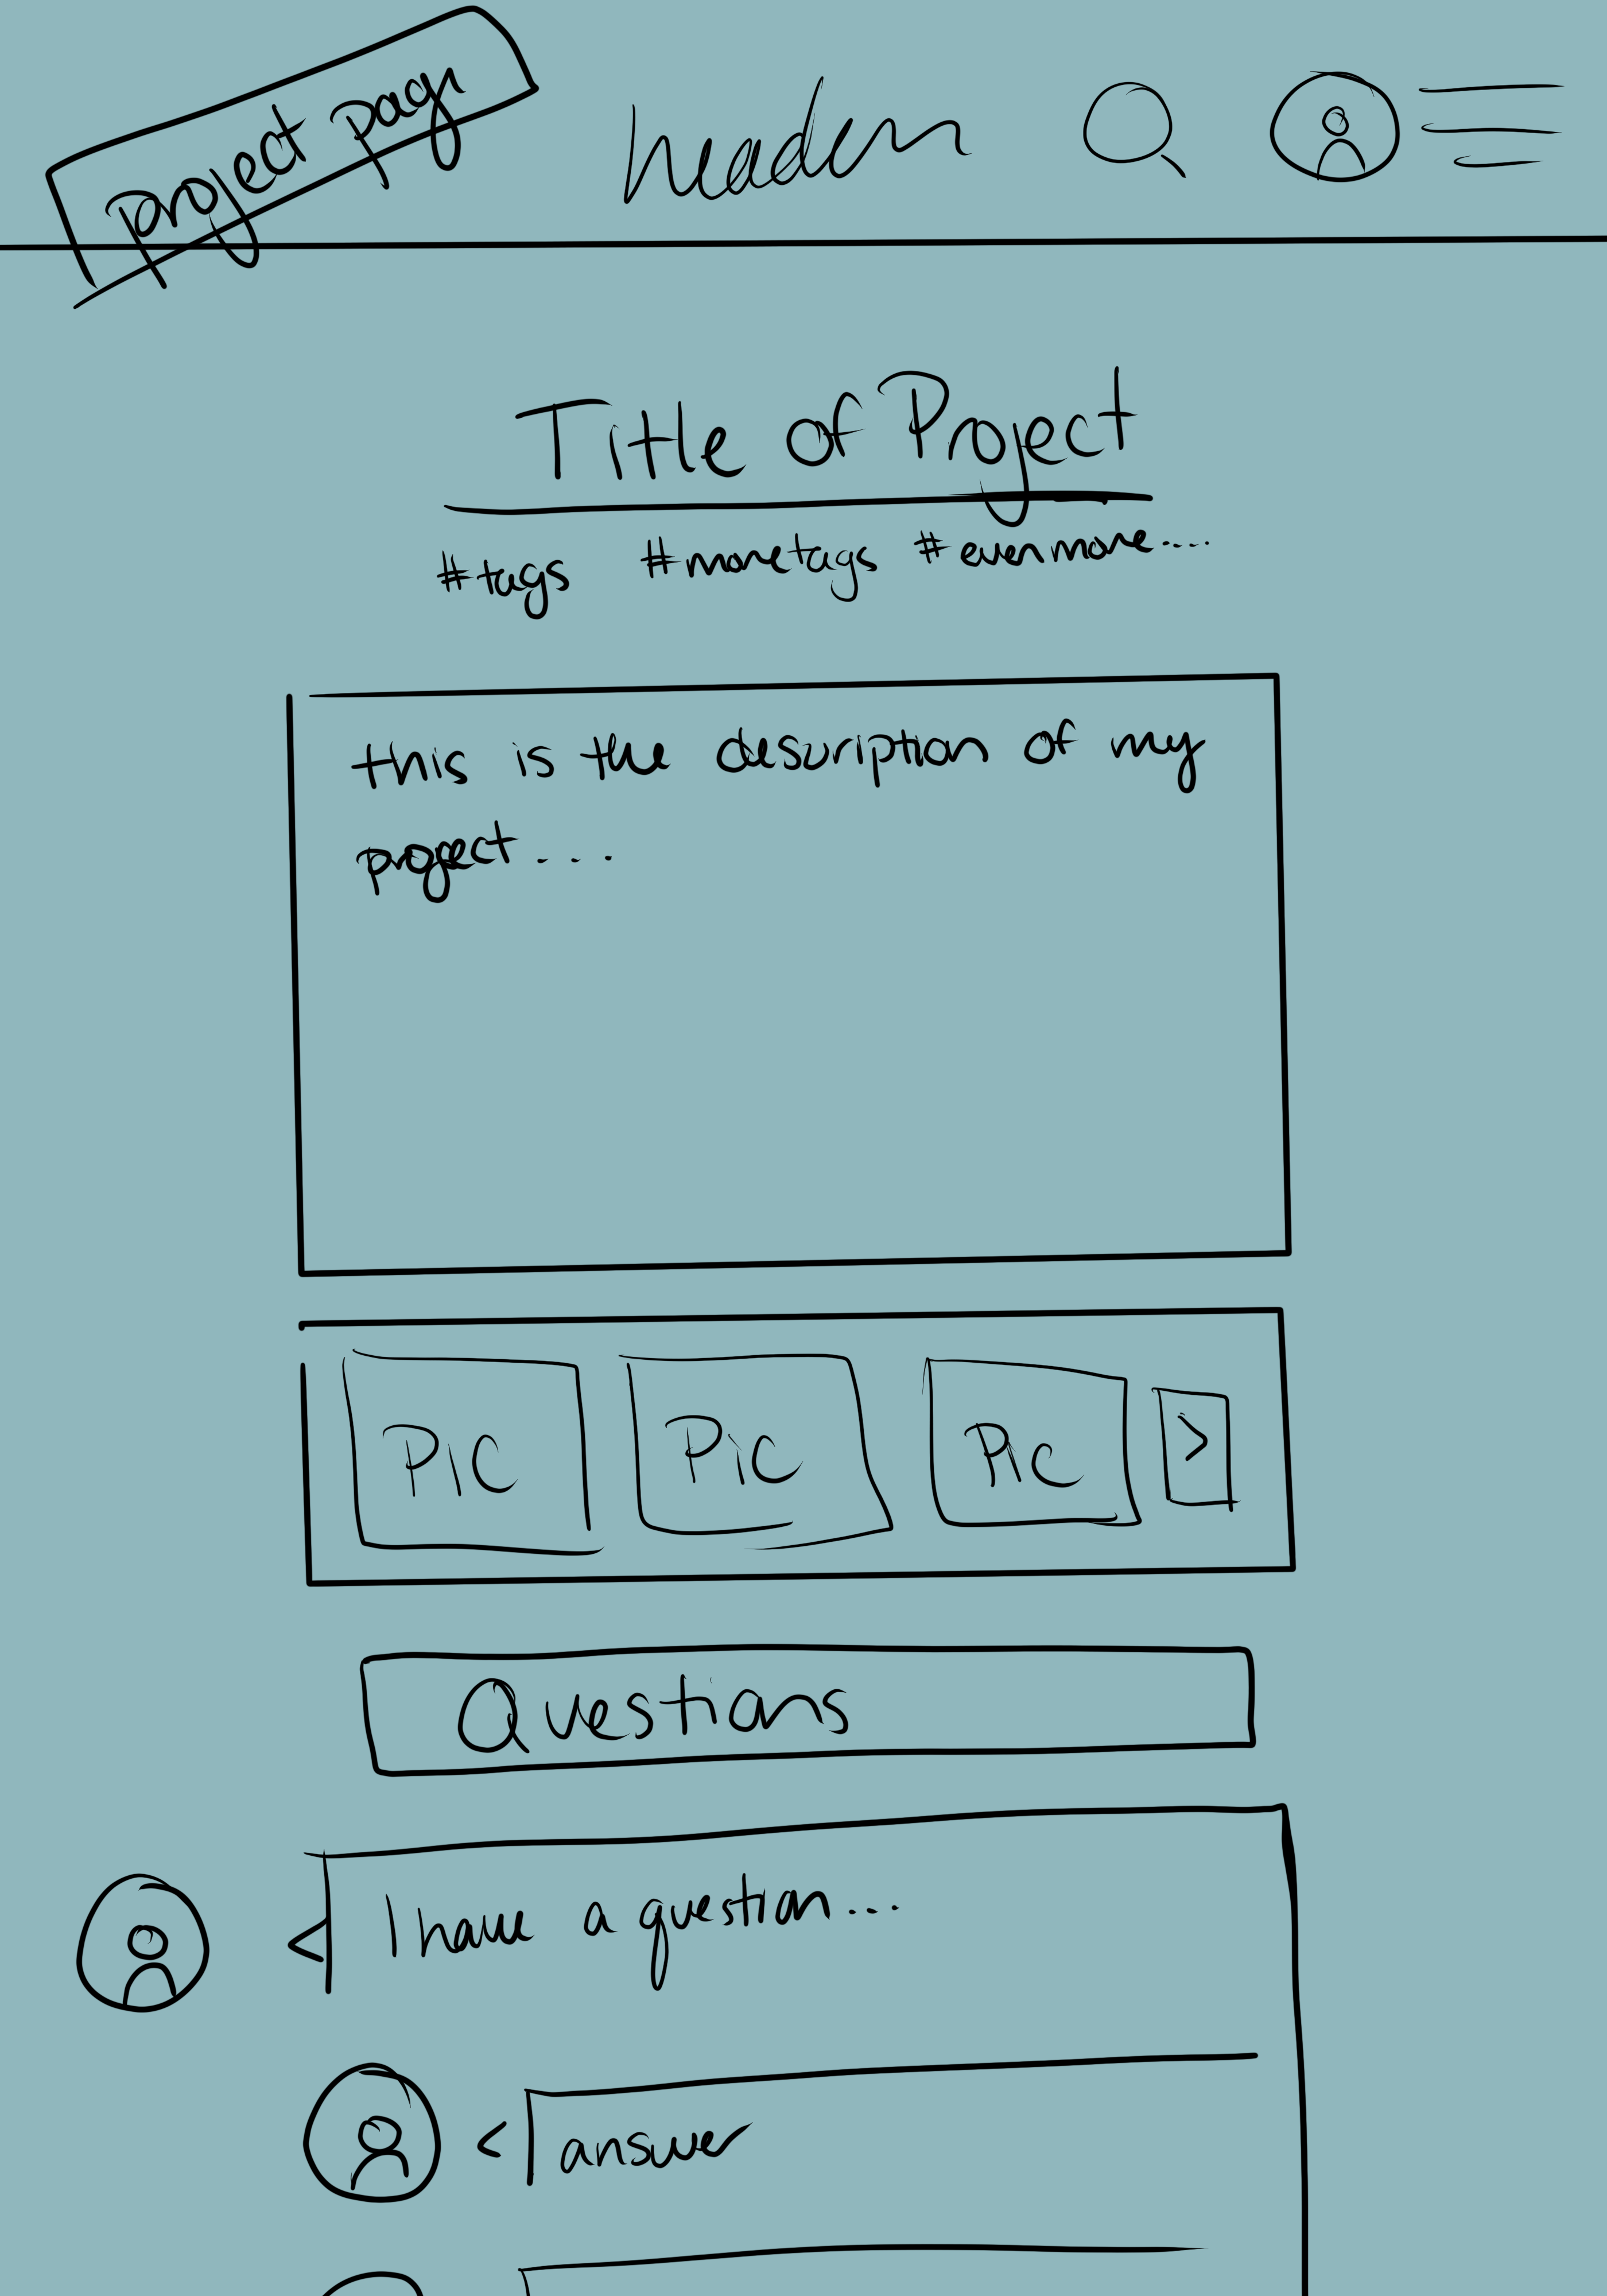 page
header
Title of Project
#tags #moretags #evenmore....
this is the description of my
project ....
PIC PIC PIC >
Questions
I have a question...
answer